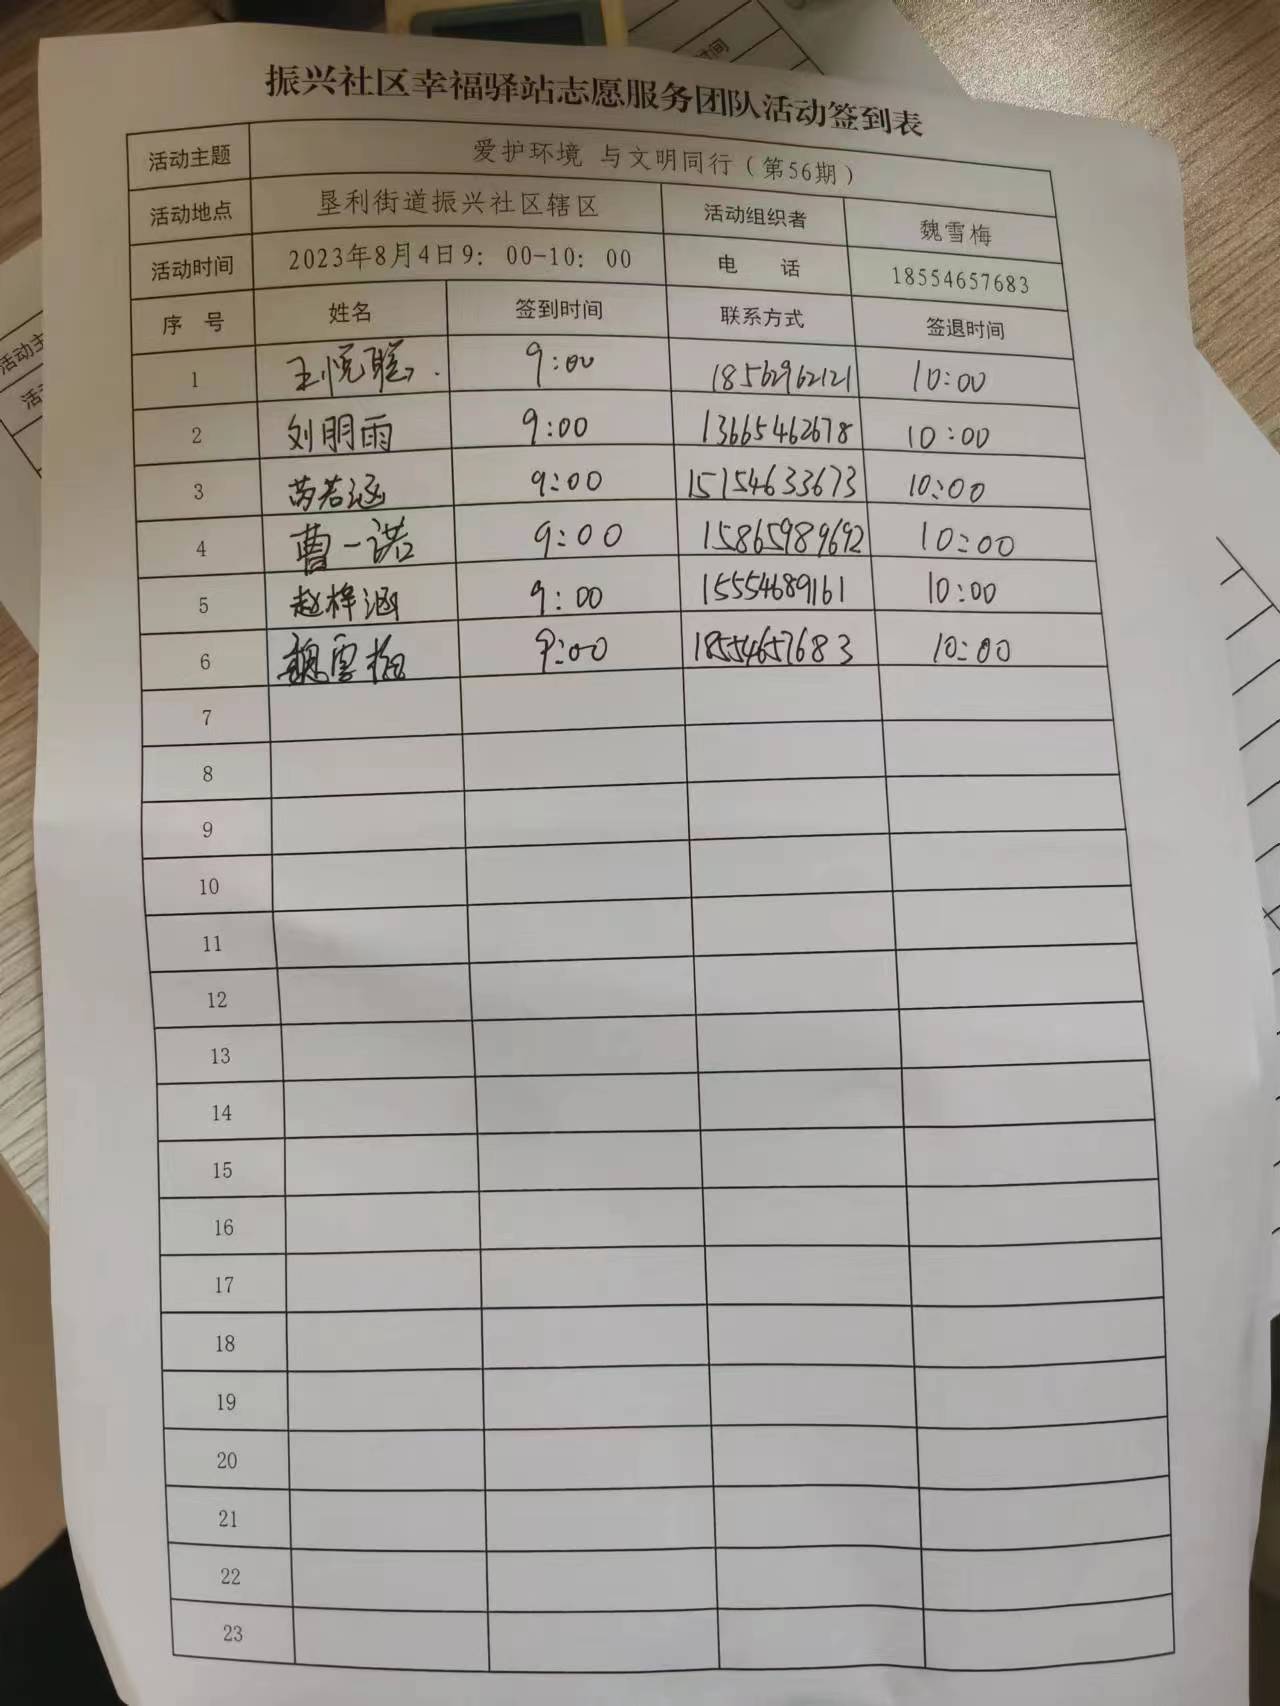 振兴社区幸福驿站志愿服务团队活动签到表
活动主题 爱护环境 与文明同行（第56期）
活动地点 垦利街道振兴社区辖区 活动组织者 魏雪梅
活动时间 2023年8月4日9：00-10：00 电 话 18554657683
序 号 姓名 签到时间 联系方式 签退时间
1 王悦聪 9:00 18562962121 10:00
2 刘明雨 9:00 13665462678 10:00
3 若涵 9:00 15154633673 10:00
4 曹一诺 9:00 15865989692 10:00
5 赵梓涵 9:00 15554689161 10:00
6 魏雪梅 9:00 18554657683 10:00
7
8
9
10
11
12
13
14
15
16
17
18
19
20
21
22
23